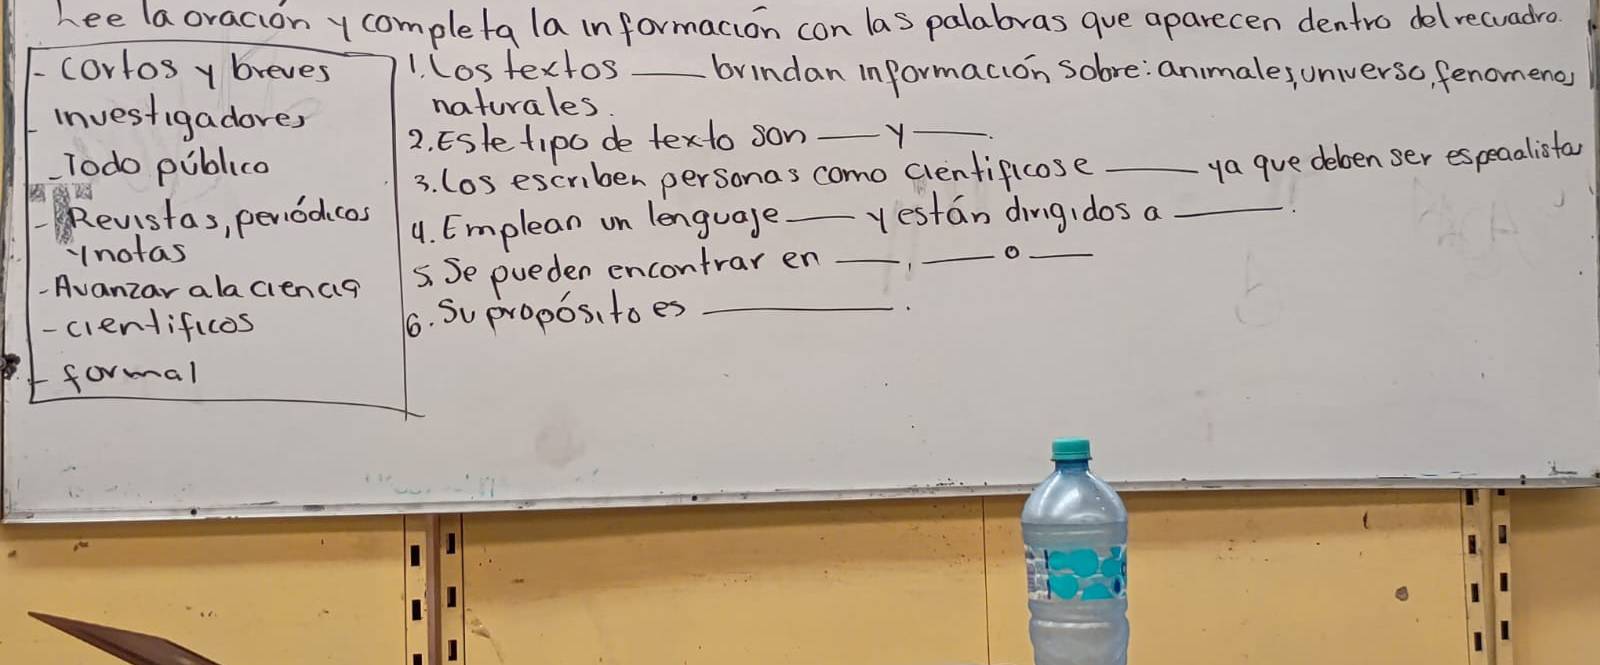 Lee la oración y completa la información con las palabras que aparecen dentro del recuadro.
- cortos y breves
- investigadores
- Todo público
- Revistas, periódicos
y notas
- Avanzar a la ciencia
- cientificos
- formal
1. Los textos ___ brindan información sobre: animales, universo, fenomenos
naturales.
2. Este tipo de texto son ___ y ___.
3. Los escriben personas como cientificos e ___ ya que deben ser especialistas
4. Emplean un lenguaje ___ y están dirigidos a ___.
5. Se pueden encontrar en ___, ___ o ___
6. Su propósito es ___.